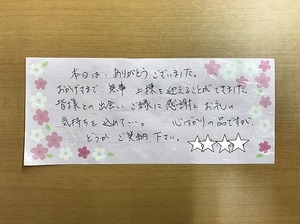 本日は、ありがとうございました。
おかげさまで、無事 上棟を迎えることができました。
皆様との出会い ご縁に感謝し お礼の
気持ちを込めて…。 心ばかりの品ですが、
どうか ご笑納下さい。